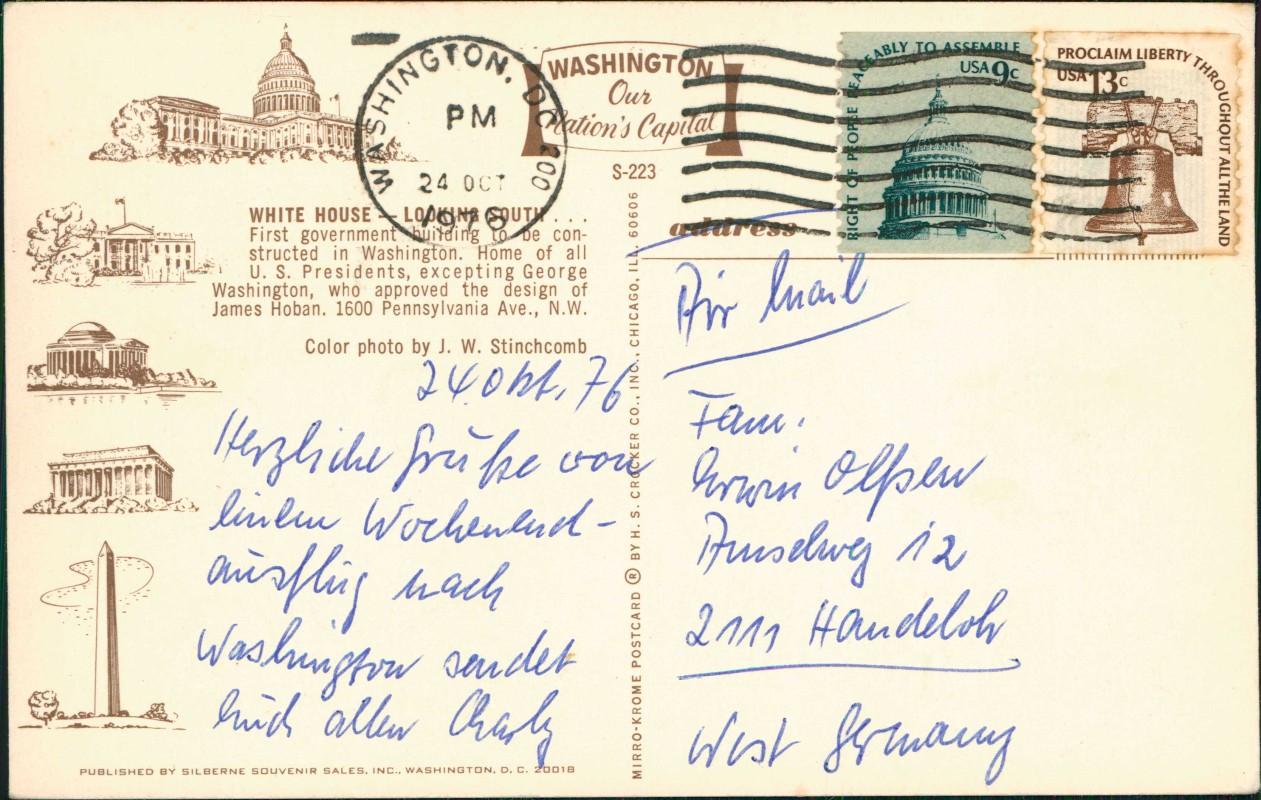 WASHINGTON
Our
Nation's Capital
S-223
WASHINGTON, DC 200
PM
24 OCT
1976
RIGHT OF PEOPLE PEACEABLY TO ASSEMBLE
USA 9c
PROCLAIM LIBERTY THROUGHOUT ALL THE LAND
USA 13c
WHITE HOUSE — LOOKING SOUTH . . .
First government building to be con-
structed in Washington. Home of all
U. S. Presidents, excepting George
Washington, who approved the design of
James Hoban. 1600 Pennsylvania Ave., N.W.
Color photo by J. W. Stinchcomb
24. Okt. 76
Herzliche Grüße von
einem Wochenend-
ausflug nach
Washington sendet
Euch allen Charly
PUBLISHED BY SILBERNE SOUVENIR SALES, INC., WASHINGTON, D. C. 20018
MIRRO-KROME POSTCARD ® BY H. S. CROCKER CO., INC., CHICAGO, ILL. 60606
address
Air Mail
Fam.
Erwin Olßen
Amselweg 12
2111 Handeloh
West Germany